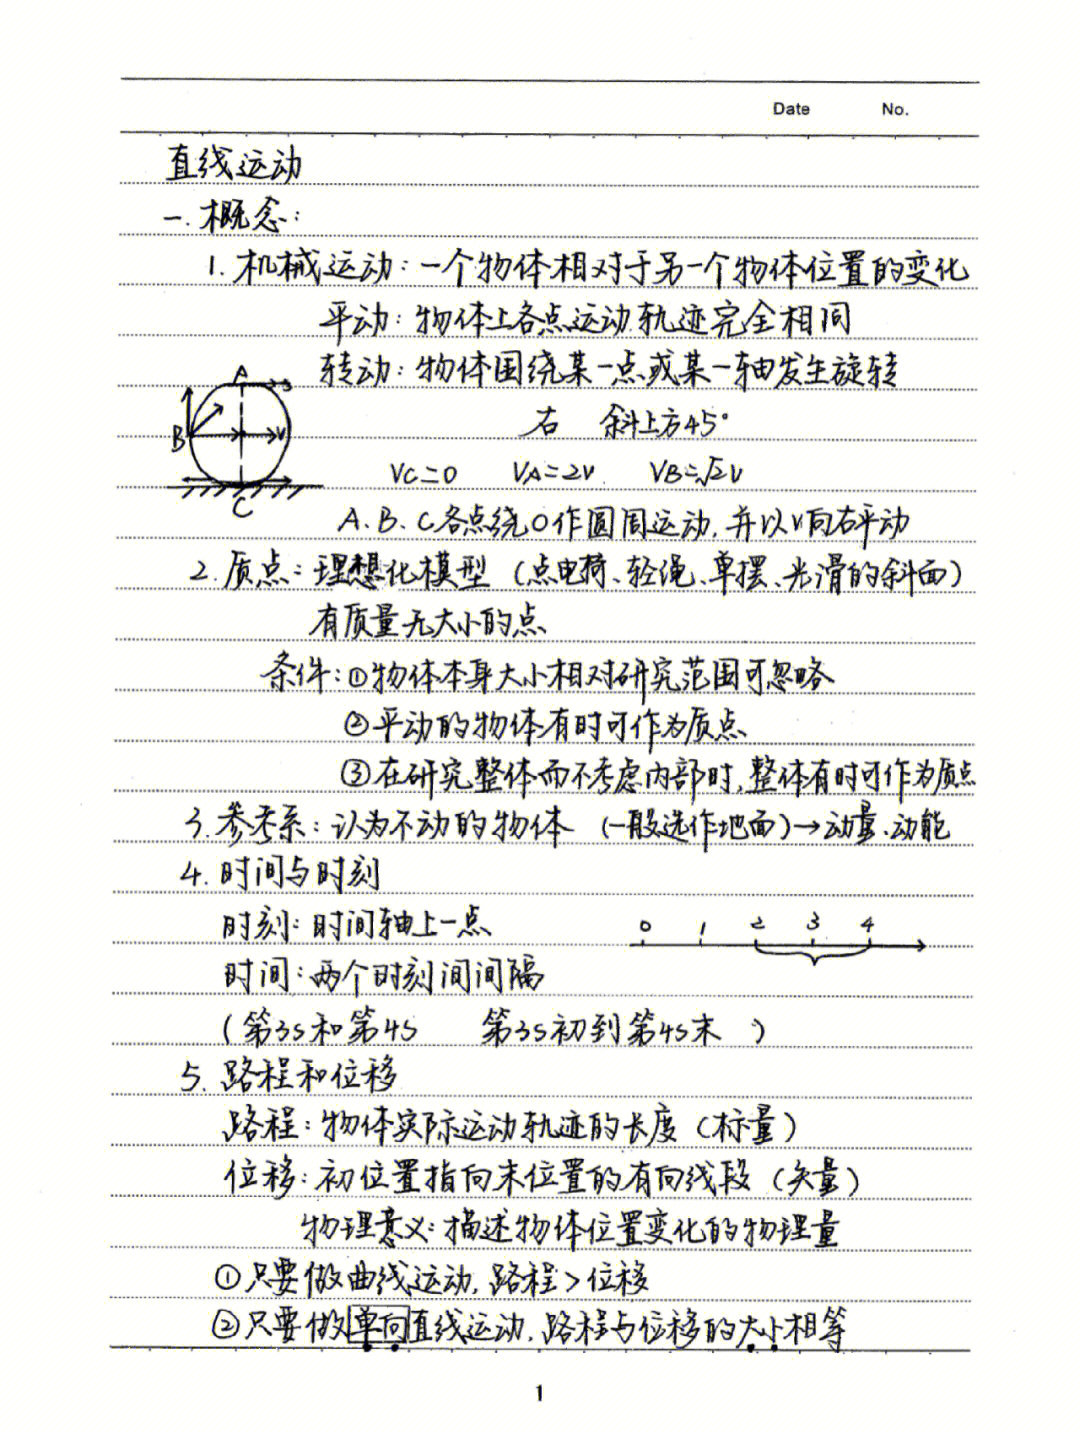 Date No.
直线运动
一.概念:
1.机械运动:一个物体相对于另一个物体位置的变化
平动:物体上各点运动轨迹完全相同
转动:物体围绕某一点或某一轴发生旋转
A
B
V
C
右 斜上方45°
VC=0 VA=2V VB=√2V
A、B、C各点绕O作圆周运动,并以V向右平动
2.质点:理想化模型(点电荷、轻绳、单摆、光滑的斜面)
有质量无大小的点
条件:①物体本身大小相对研究范围可忽略
②平动的物体有时可作为质点
③在研究整体而不考虑内部时,整体有时可作为质点
3.参考系:认为不动的物体 (一般选作地面)→动量、动能
4.时间与时刻
时刻:时间轴上一点
0 1 2 3 4
时间:两个时刻间间隔
(第3s和第4s 第3s初到第4s末 )
5.路程和位移
路程:物体实际运动轨迹的长度(标量)
位移:初位置指向末位置的有向线段(矢量)
物理意义:描述物体位置变化的物理量
①只要做曲线运动,路程>位移
②只要做单向直线运动,路程与位移的大小相等
1